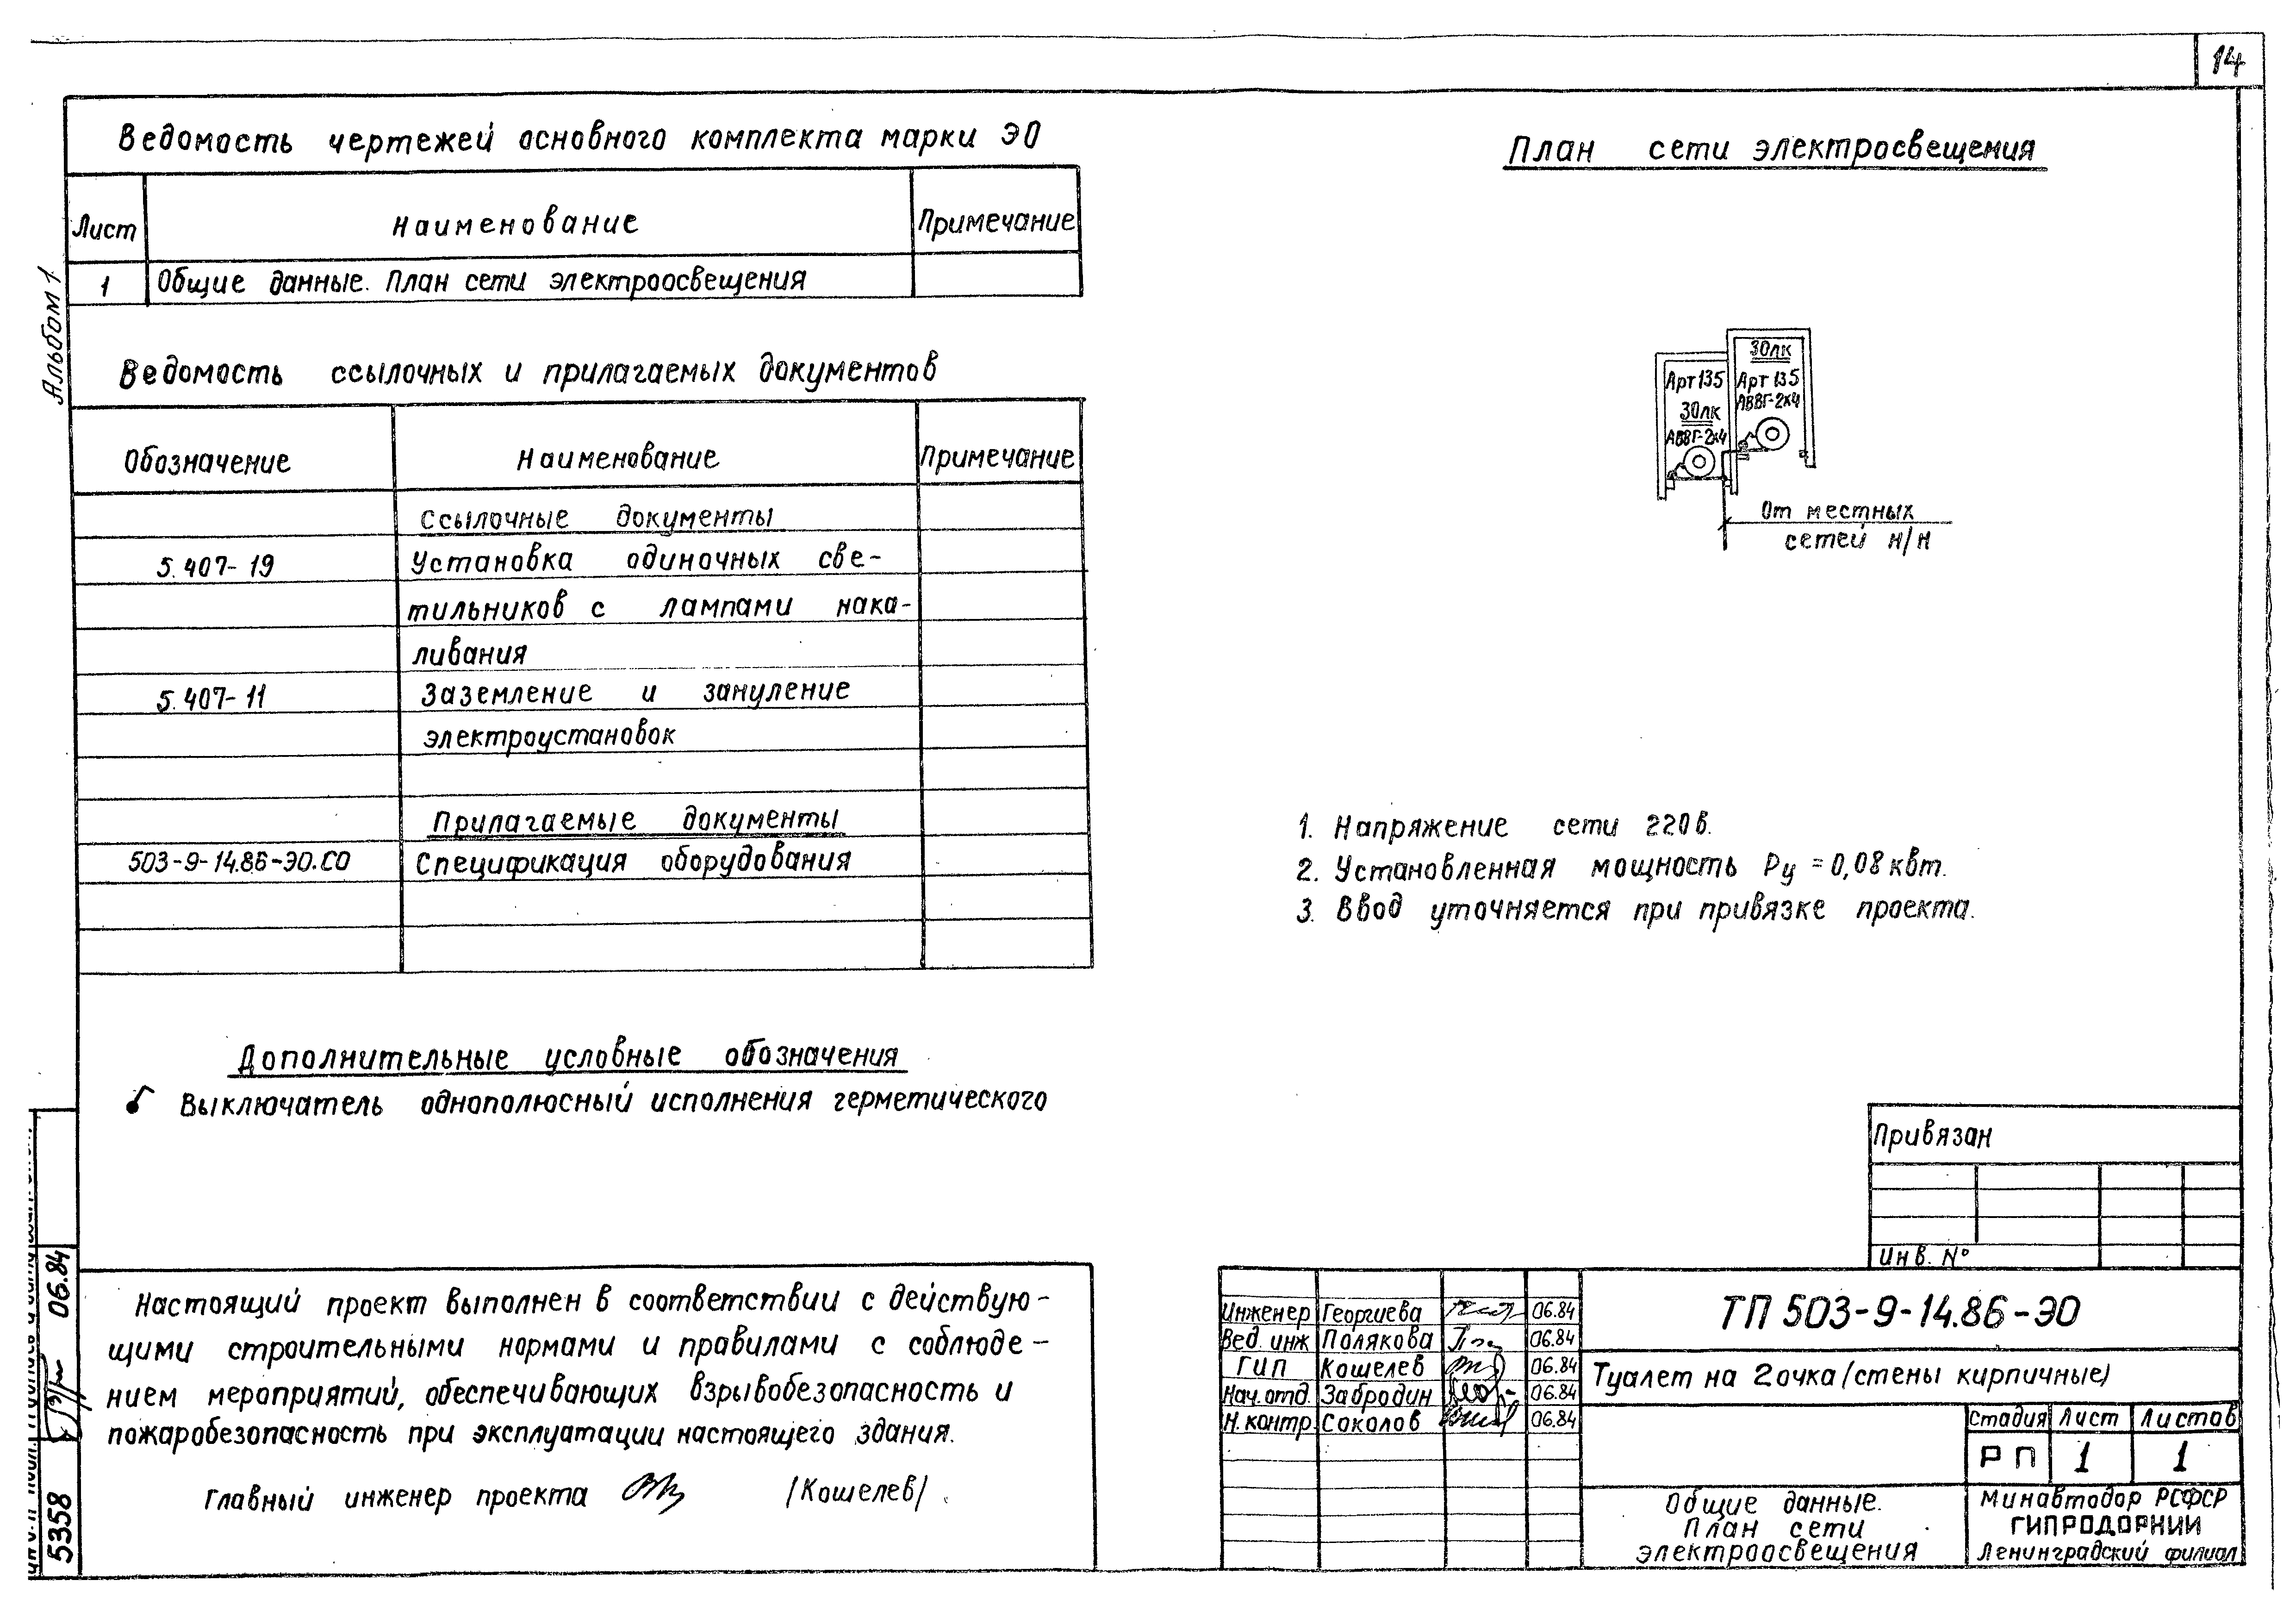 14
Альбом 1
Ведомость чертежей основного комплекта марки ЭО
Лист Наименование Примечание
1 Общие данные. План сети электроосвещения
Ведомость ссылочных и прилагаемых документов
Обозначение Наименование Примечание
Ссылочные документы
5.407-19 Установка одиночных све-
тильников с лампами нака-
ливания
5.407-11 Заземление и зануление
электроустановок
Прилагаемые документы
503-9-14.86-ЭО.СО Спецификация оборудования
Дополнительные условные обозначения
Выключатель однополюсный исполнения герметического
Настоящий проект выполнен в соответствии с действую-
щими строительными нормами и правилами с соблюде-
нием мероприятий, обеспечивающих взрывобезопасность и
пожаробезопасность при эксплуатации настоящего здания.
Главный инженер проекта /Кошелев/
5358
06.84
План сети электросвещения
30лк
Арт 135
АВВГ-2х4
Арт 135
30лк
АВВГ-2х4
От местных
сетей н/н
1. Напряжение сети 220в.
2. Установленная мощность Ру = 0,08 квт.
3. Ввод уточняется при привязке проекта.
Привязан
Инв. №
Инженер Георгиева 06.84
Вед. инж Полякова 06.84
ГИП Кошелев 06.84
Нач. отд. Забродин 06.84
Н. контр. Соколов 06.84
ТП 503-9-14.86-ЭО
Туалет на 2 очка (стены кирпичные)
Стадия Лист Листов
РП 1 1
Общие данные.
План сети
электроосвещения
Минавтодор РСФСР
ГИПРОДОРНИИ
Ленинградский филиал